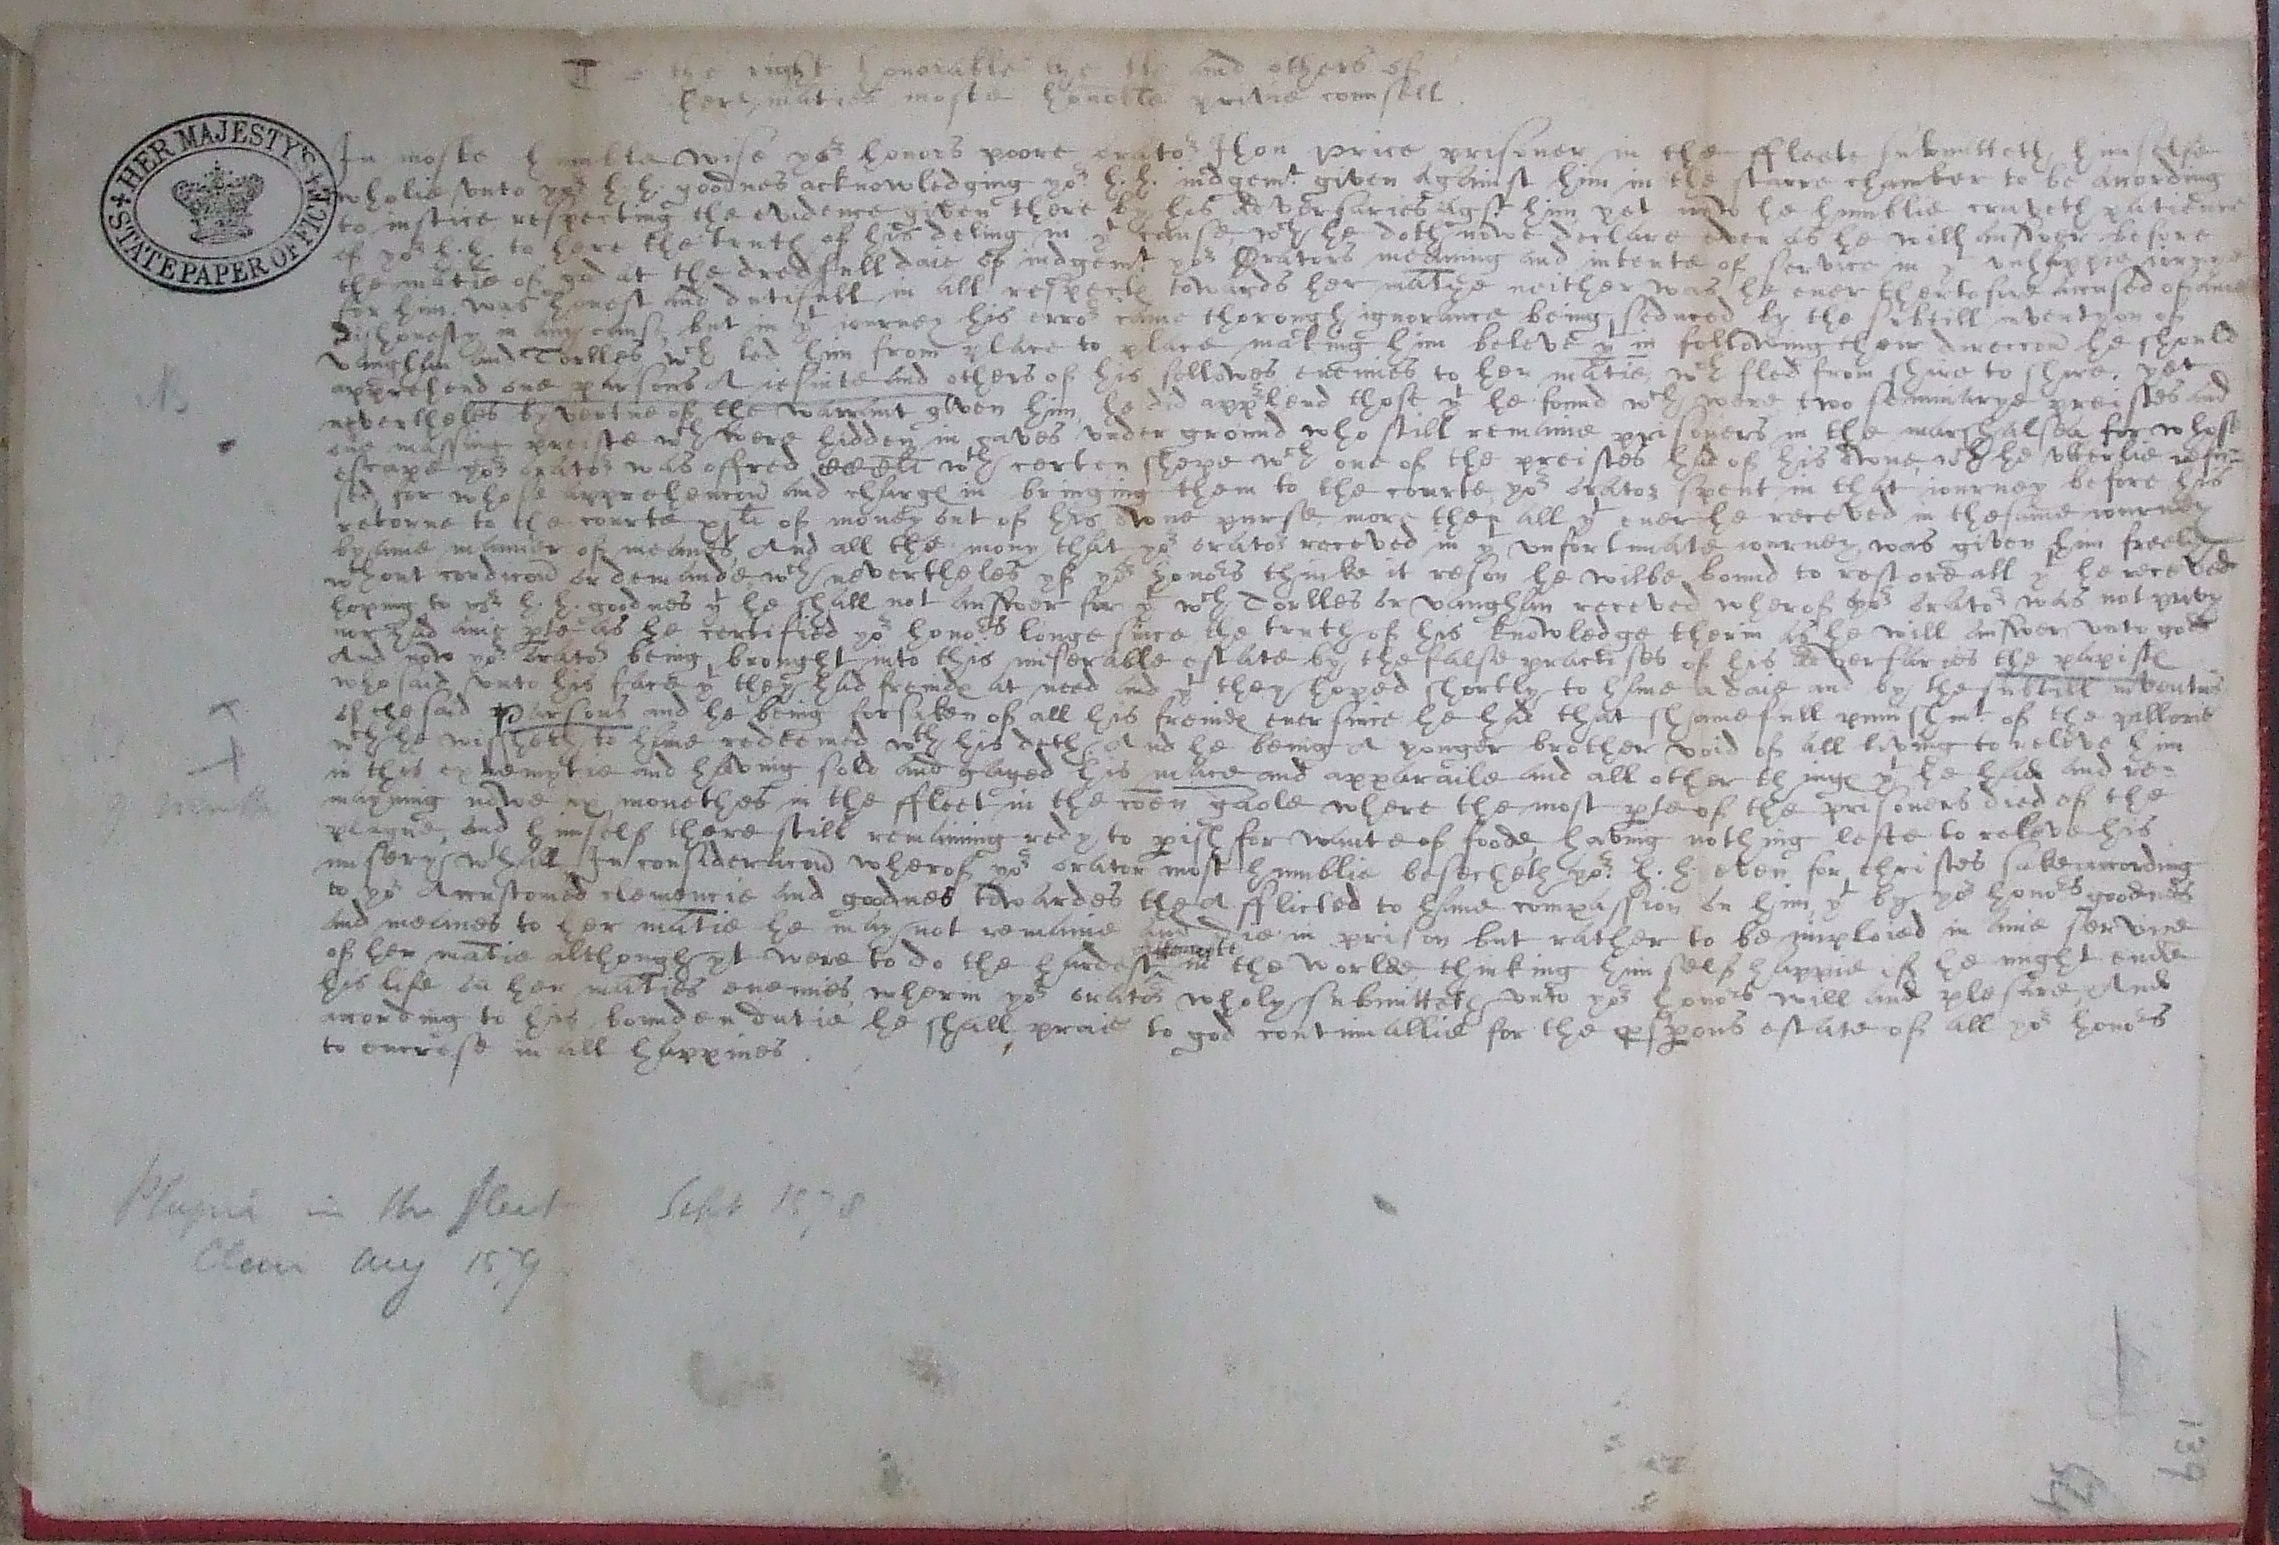 To the right honorable the llo and others of
her maties moste honoble privie counsell.
HER MAJESTY'S STATE PAPER OFFICE
In moste humble wise yor honors poore orator Jhon Price prisoner in the ffleete submitteth himselfe
wholie unto yor h.h. goodnes acknowledging yor h.h. iudgemt given against him in the starre chamber to be acording
to iustice respecting the evidence given there by his adversaries agst him yet now he humblie craveth patience
of yor h.h. to here the truth of his deling in yt cause wch he doth nowe declare even as he will answer before
the matie of god at the dredfull daie of iudgemt yor Orators meaning and intente of service in yt unhappie iorney
for him was honest and dutifull in all respectes towards her matie neither was he ever hertofore accused of anie
dishonesty in any cause but in yt iourney his error came thorough ignorance being seduced by the subtill inventyon of
vaughan and Torlles wch led him from place to place making him beleve yt in following their direccon he should
apprehend one parsons A iesuite and others of his fellowes enemies to her matie, wch fled from shire to shire. yet
nevertheles by vertue of the warrant given him he did apprehend those yt he found wch were two seminarye preistes and
one massing preiste wch were hidden in caves under ground who still remaine prisoners in the marshalsea for whose
escape yor orator was offred wth certen shepe wch one of the preistes had of his owne, wch he utterlie refu-
sed, for whose apprehencon and charge in bringing them to the courte yor orator spent in that iourney before his
retorne to the courte of money out of his owne purse more then all yt ever he receved in the same iourney
by anie manner of meanes And all the mony that yor orator receved in yt unfortunate iourney was given him freely
wthout condicon or demande wch nevertheles yf yor honors thinke it reson he wilbe bound to restore all yt he receved
hoping to yor h.h. goodnes yt he shall not answer for yt wch Torlles or vaughan receved wherof yor orator was not privy
nor had anie pte as he certified yor honors longe since the truth of his knowledge therin as he will answer unto god
And now yor orator being brought into this miserable estate by the false practises of his adversaries the papistes
who said unto his face yt they had freindes at need and yt they hoped shortly to have a daie and by the subtill inventions
of the said Parsons and he being forsaken of all his freindes ever since he had that shamefull punishmt of the pillorie
wch he wissheth to have redeemed wth his deth And he being A yonger brother void of all living to releve him
in this extremytie and having sold and gaged his and apparaile and all other thinges yt he had and re-
mayning nowe ix monethes in the ffleet in the coen gaole where the most pte of the prisoners died of the
plague, and himself there still remaining redy to pish for wante of foode, having nothing lefte to releve his
misery wthall In consideracon wherof yor orator most humblie besecheth yor h.h. even for christes sake acording
to yor Acustomed clemencie and goodnes towardes the Afflicted to have compassion on him, yt by yor honors goodnes
and meanes to her matie he may not remaine and die in prison but rather to be imploied in anie service
of her matie although yt were to do the hardest attempte in the worlde thinking himself happie if he might ende
his life on her maties enemies, wherin yor orator wholy submitteth unto yor honors will and plesure, And
acording to his bounden dutie he shall praie to god continuallie for the psperous estate of all yor honors
to encrese in all happines.
9 months
Plague in the fleet Sept 1578
Clear Aug 1579
139